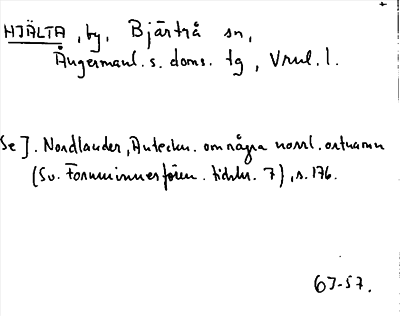 HJÄLTA, by, Bjärtrå sn,
Ångermanl. s. doms. tg, Vnrl. l.
Se J. Nordlander, Anteckn. om några norrl. ortnamn
(Sv. Fornminnesfören. tidskr. 7), s. 176.
63-57.